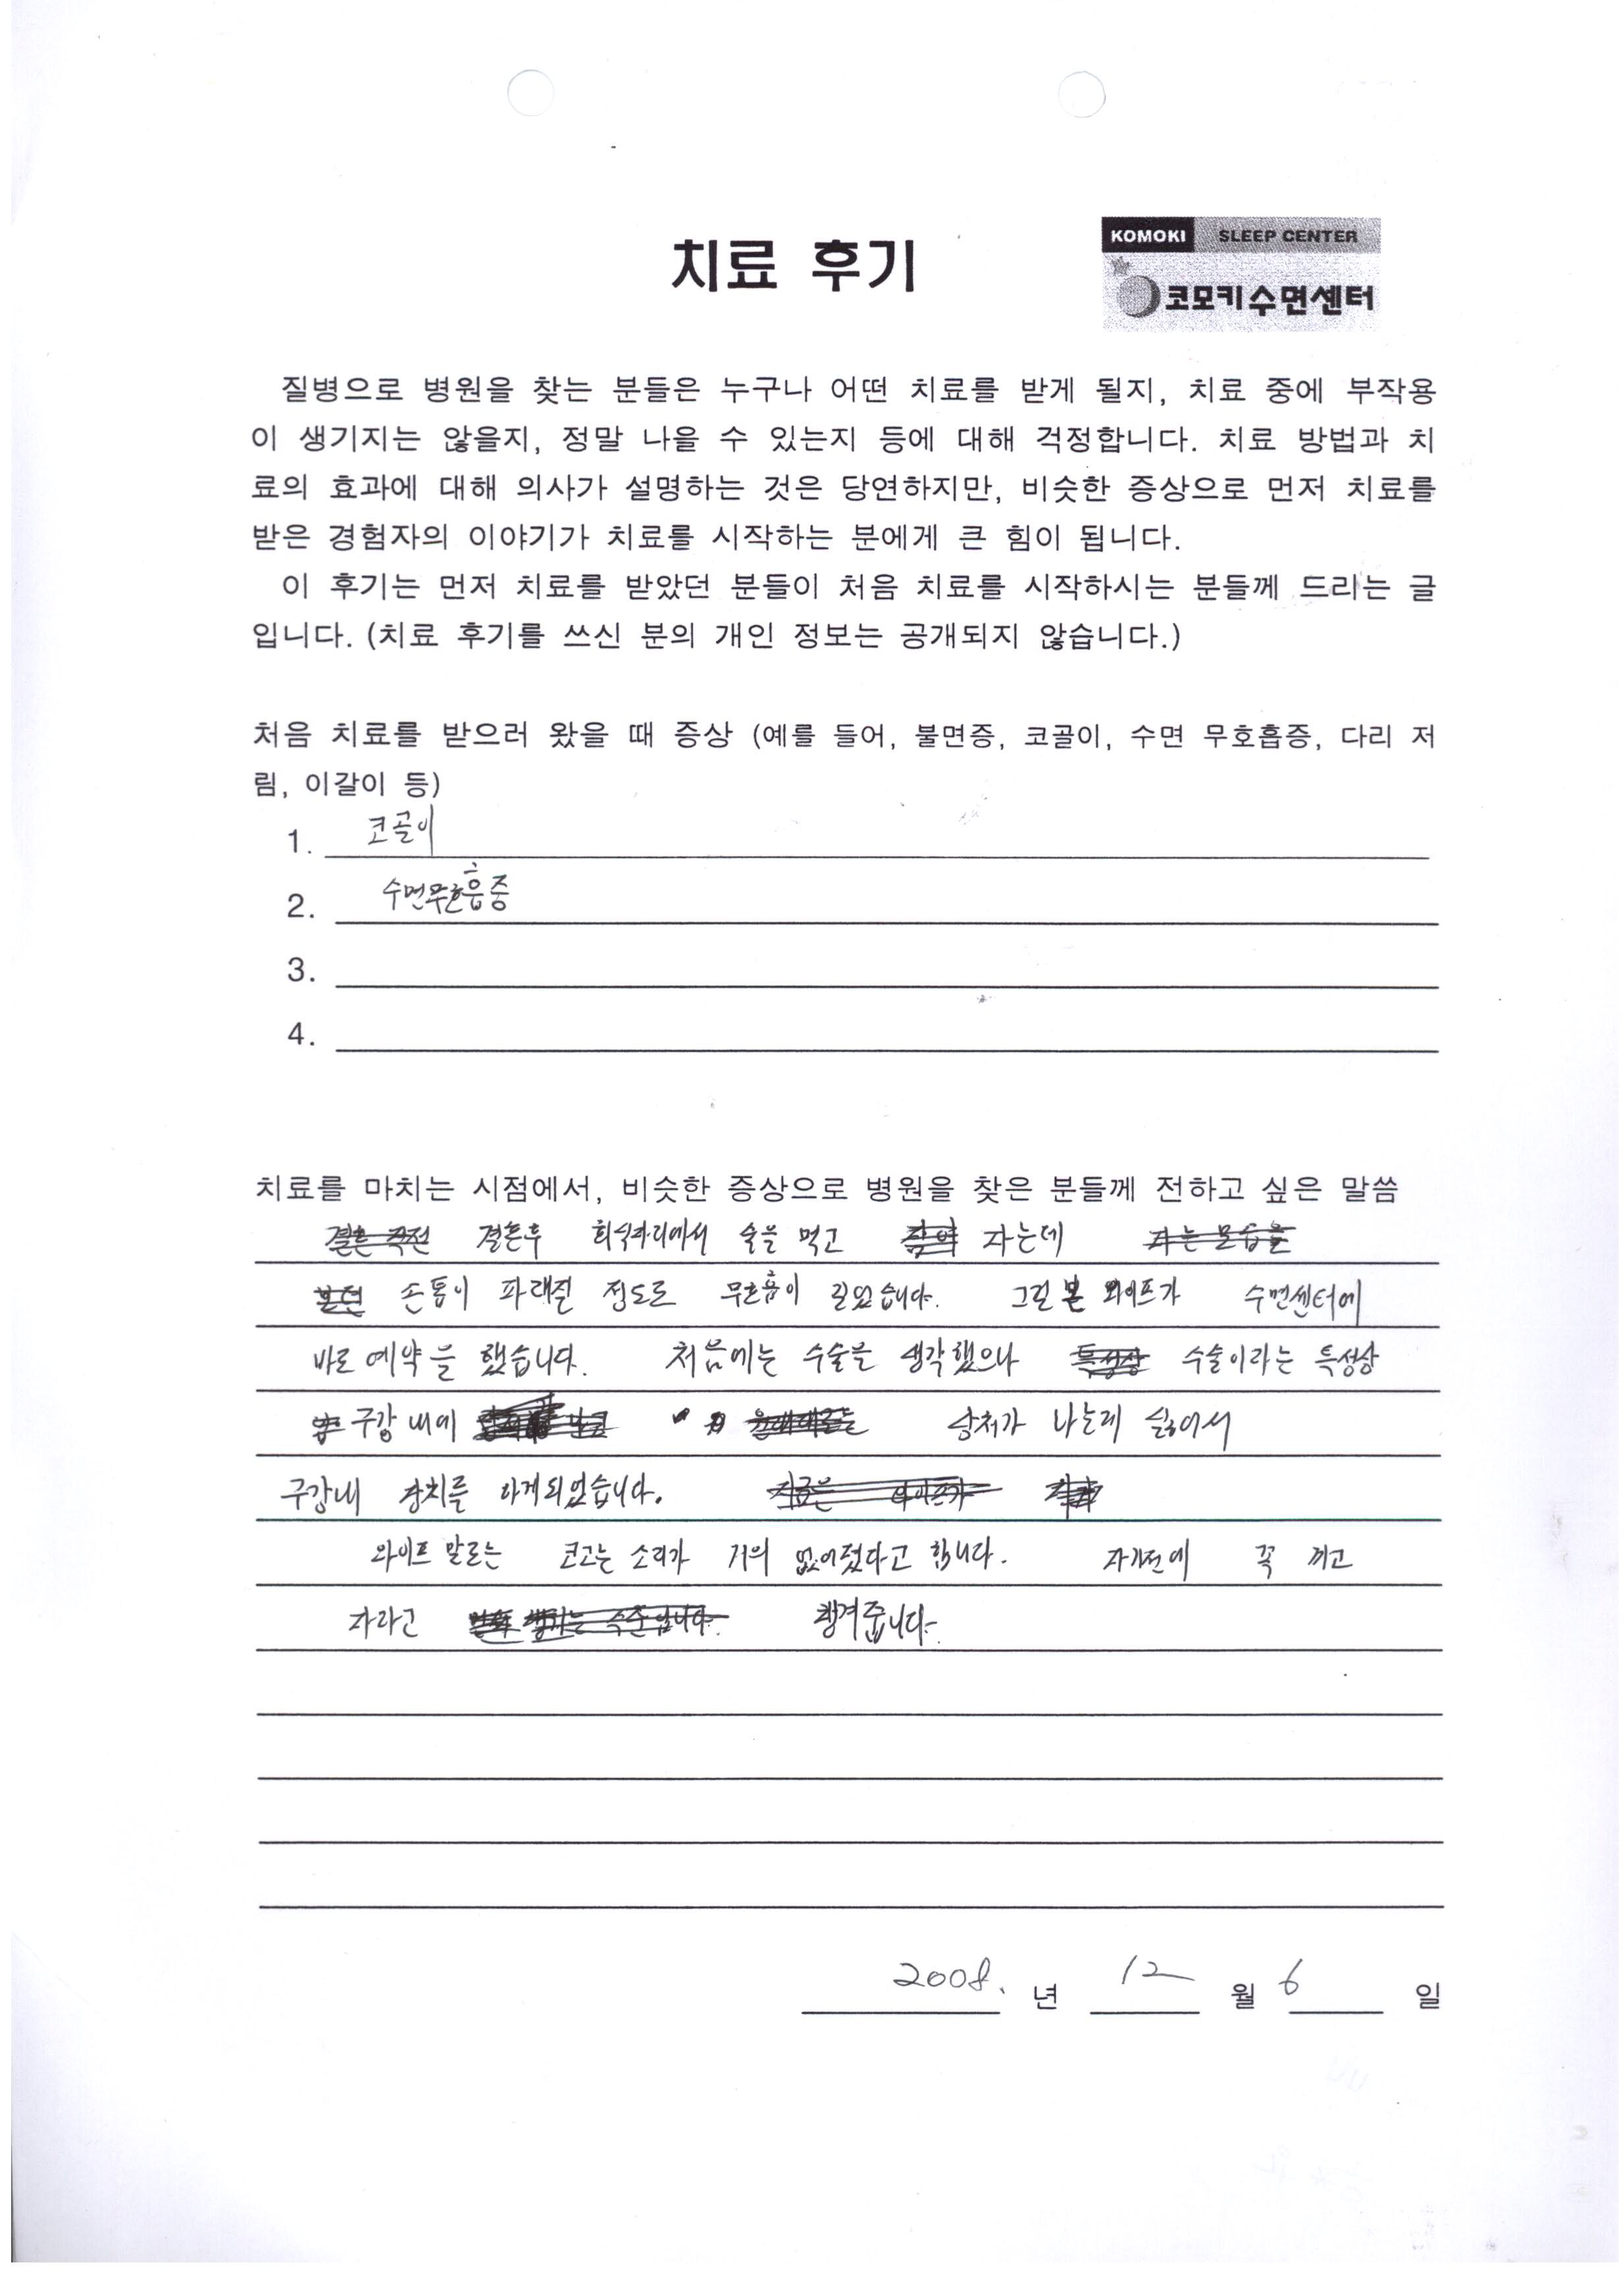 치료 후기
KOMOKI SLEEP CENTER
코모키수면센터
질병으로 병원을 찾는 분들은 누구나 어떤 치료를 받게 될지, 치료 중에 부작용
이 생기지는 않을지, 정말 나을 수 있는지 등에 대해 걱정합니다. 치료 방법과 치
료의 효과에 대해 의사가 설명하는 것은 당연하지만, 비슷한 증상으로 먼저 치료를
받은 경험자의 이야기가 치료를 시작하는 분에게 큰 힘이 됩니다.
이 후기는 먼저 치료를 받았던 분들이 처음 치료를 시작하시는 분들께 드리는 글
입니다. (치료 후기를 쓰신 분의 개인 정보는 공개되지 않습니다.)
처음 치료를 받으러 왔을 때 증상 (예를 들어, 불면증, 코골이, 수면 무호흡증, 다리 저
림, 이갈이 등)
1. 코골이
2. 수면무호흡증
3.
4.
치료를 마치는 시점에서, 비슷한 증상으로 병원을 찾은 분들께 전하고 싶은 말씀
결혼후 회식자리에서 술을 먹고 자는데
손톱이 파래질 정도로 무호흡이 길었습니다. 그걸 본 와이프가 수면센터에
바로 예약을 했습니다. 처음에는 수술을 생각했으나 수술이라는 특성상
구강 내에 상처가 나는게 싫어서
구강내 장치를 하게되었습니다.
와이프 말로는 코고는 소리가 거의 없어졌다고 합니다. 자기전에 꼭 끼고
자라고 챙겨줍니다.
2008. 년 12 월 6 일